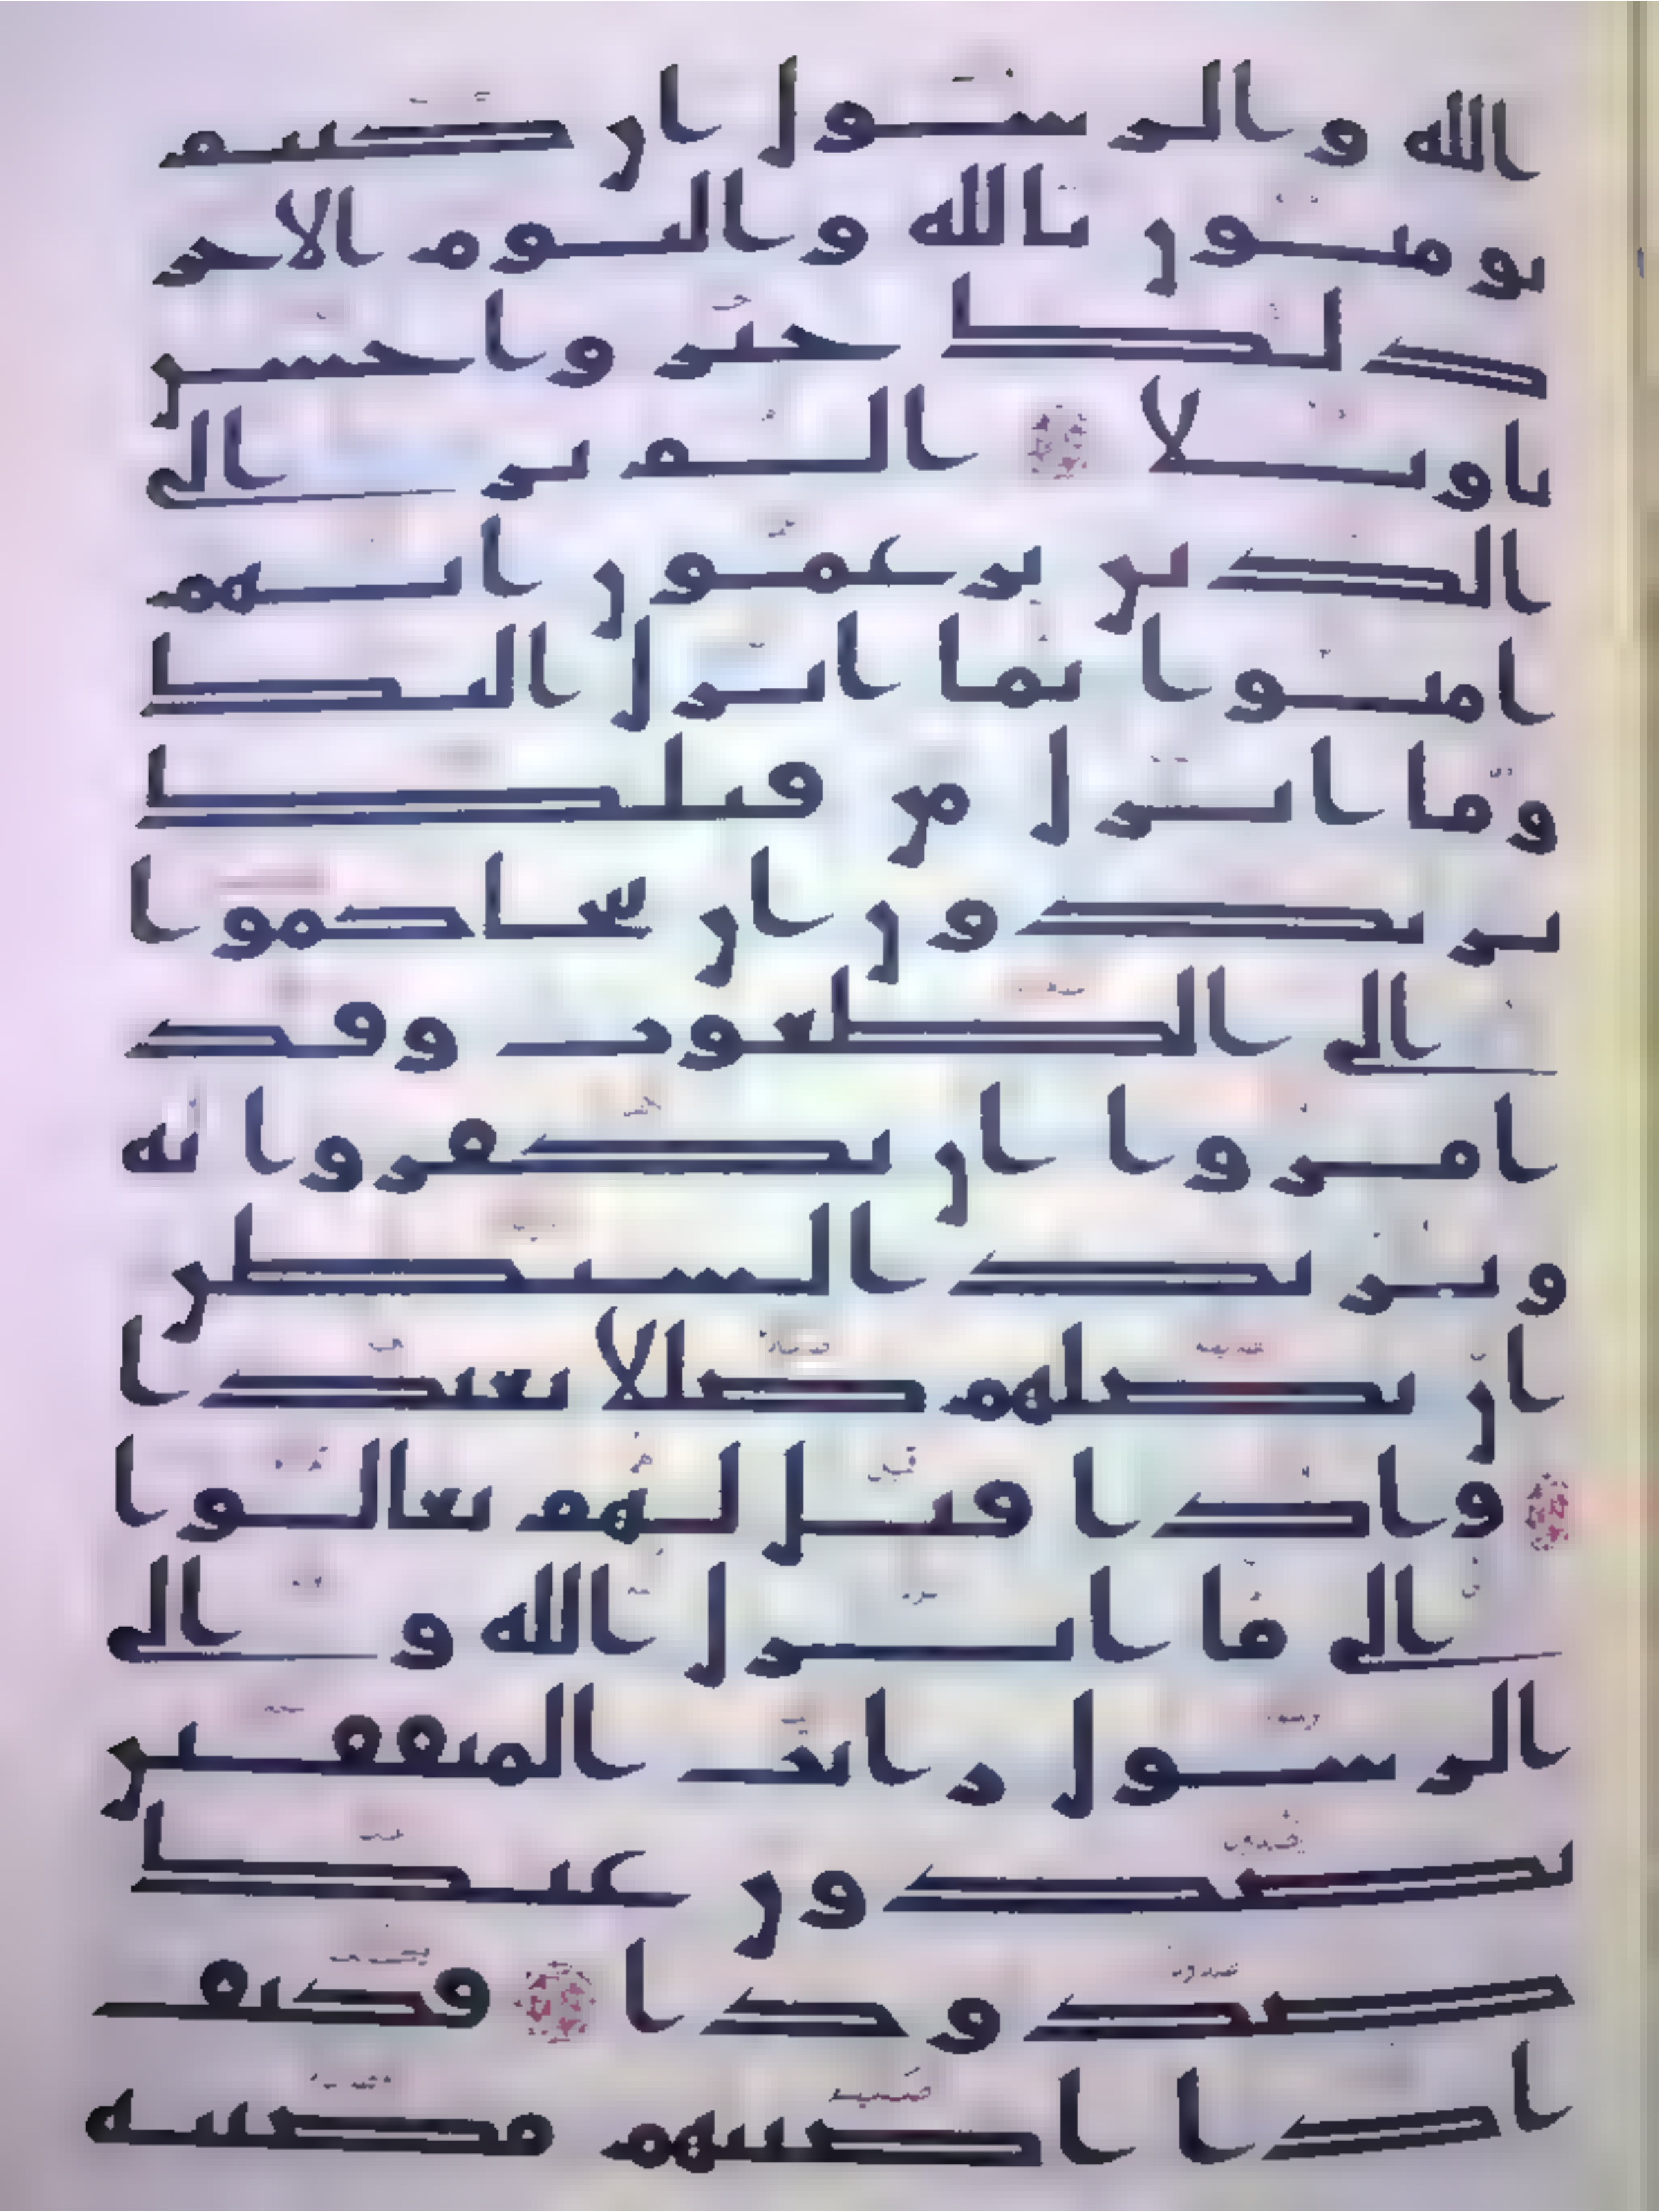 الله والرسول ان كنتم
تومنون بالله واليوم الاخر
ذلك خير واحسن
تاويلا الم تر الى
الذين يزعمون انهم
امنوا بما انزل اليك
وما انزل من قبلك
يريدون ان يتحاكموا
الى الطغوت وقد
امروا ان يكفروا به
ويريد الشيطن
ان يضلهم ضللا بعيدا
واذا قيل لهم تعالوا
الى ما انزل الله والى
الرسول رايت المنفقين
يصدون عنك
صدودا فكيف
اذا اصبتهم مصيبه